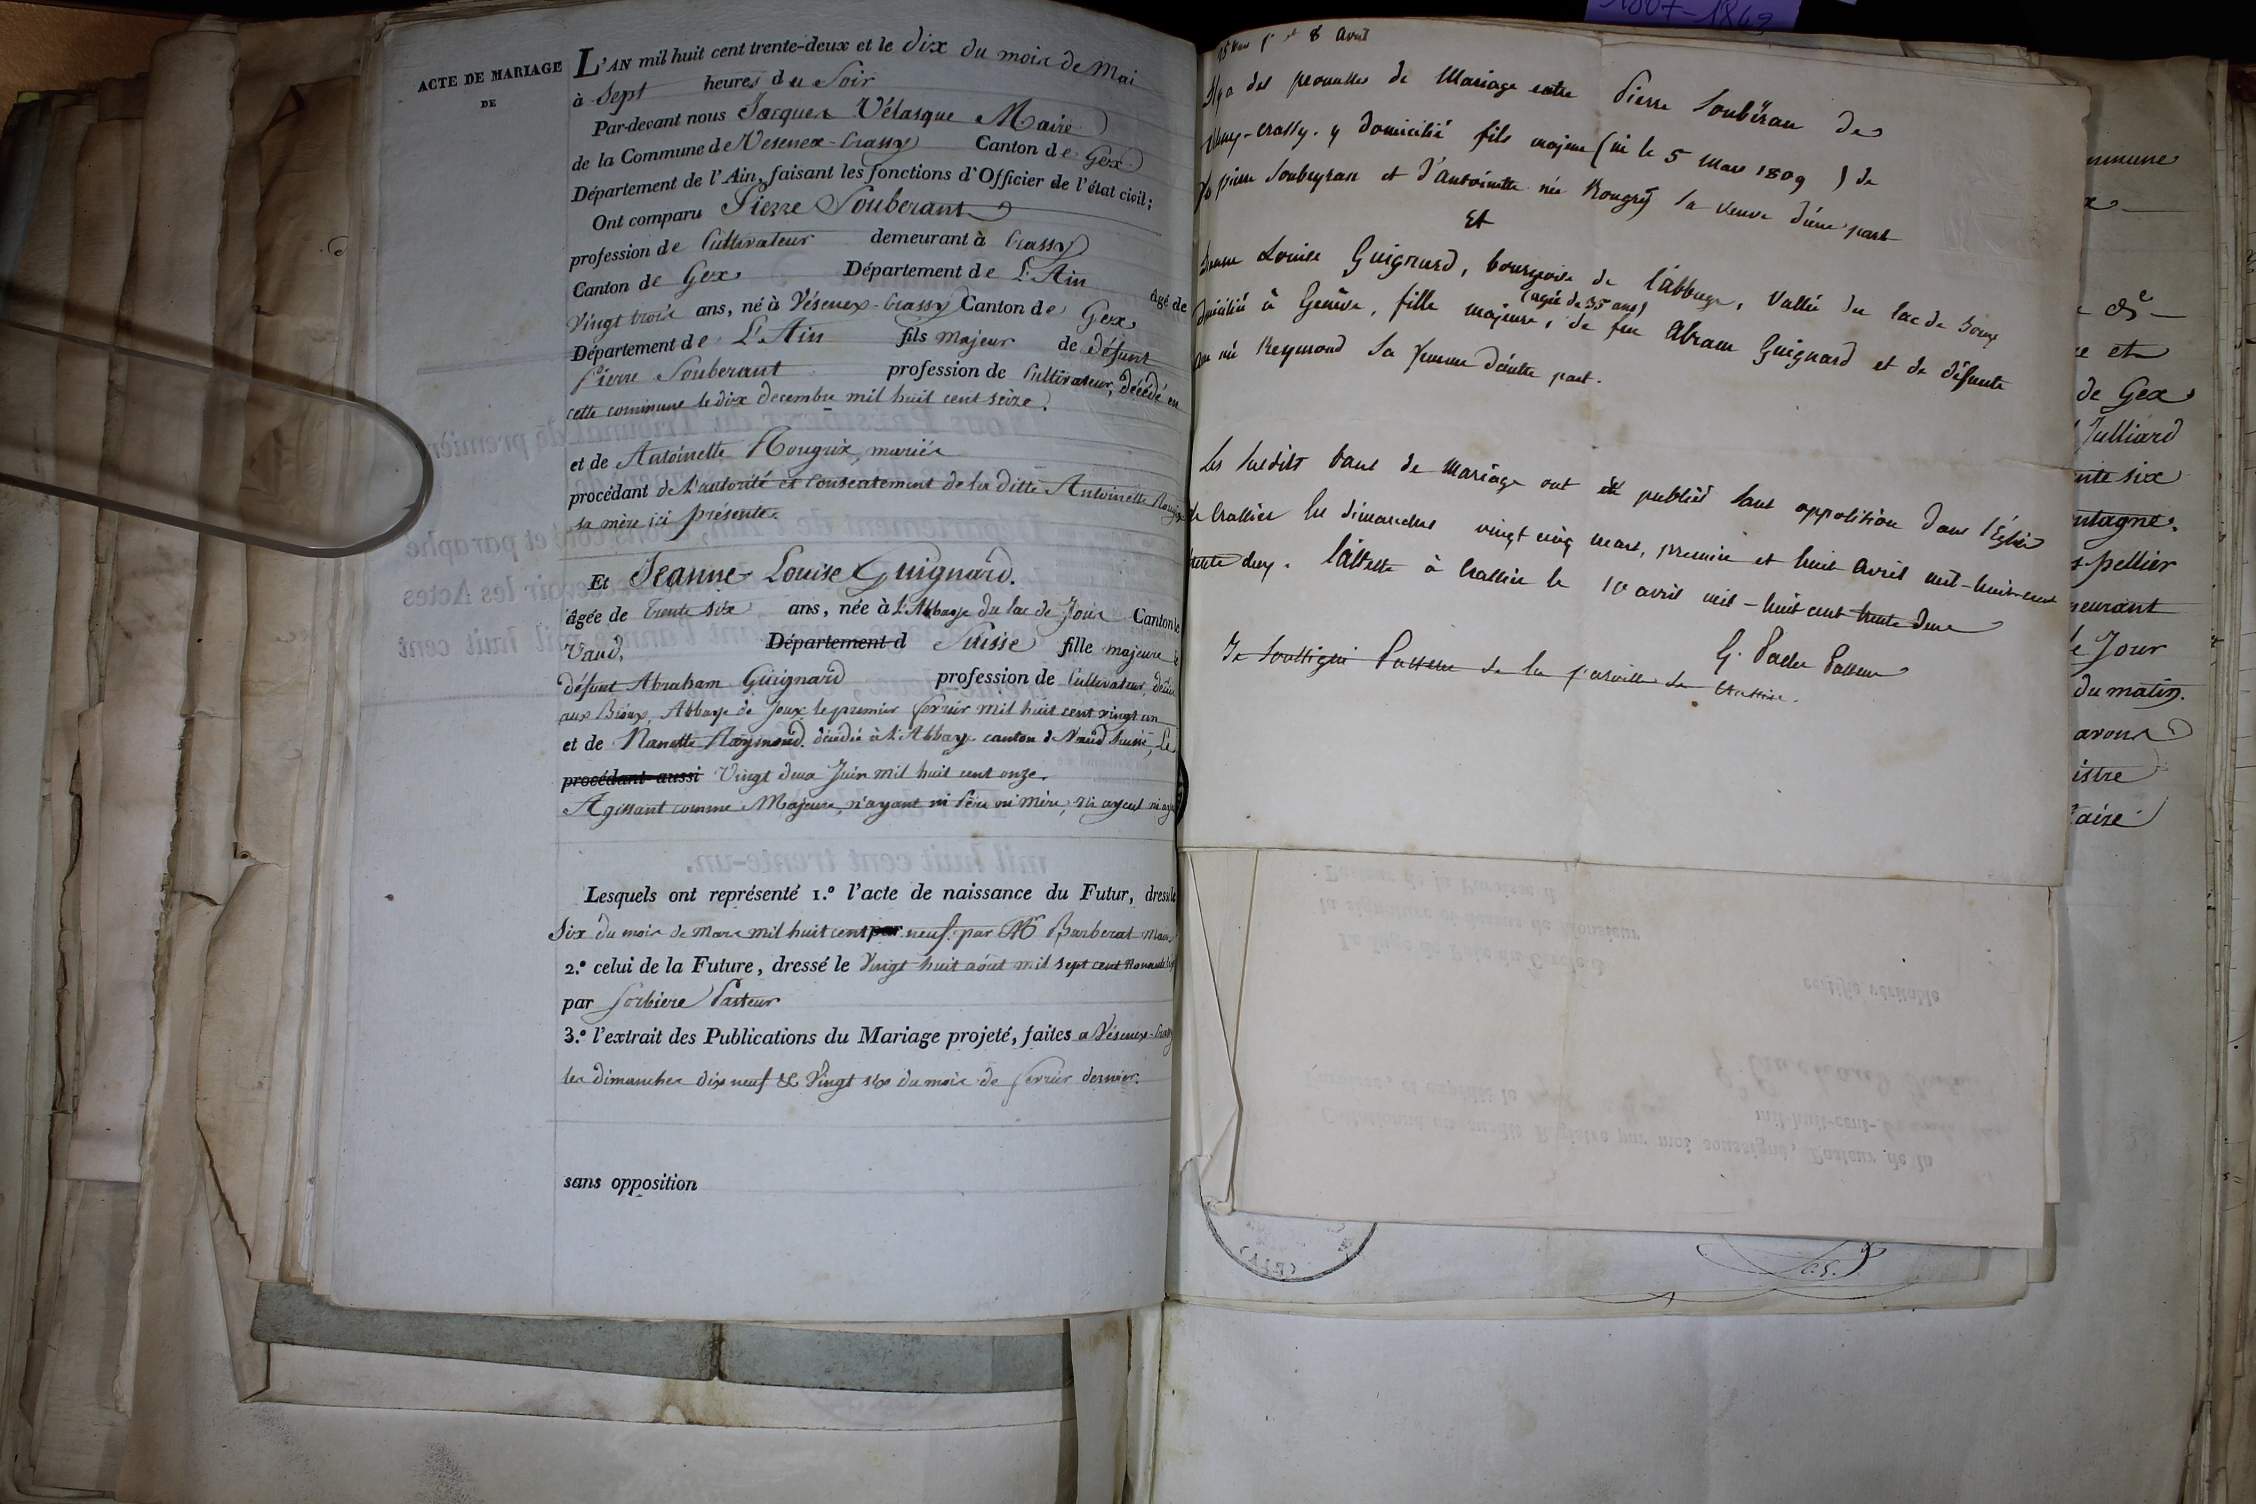 ACTE DE MARIAGE
DE
L'AN mil huit cent trente-deux et le dix du mois de Mai
à Sept heures du Soir
Par-devant nous Jacques Vélasque Maire
de la Commune de Vesenex-Crassy Canton de Gex
Département de l'Ain, faisant les fonctions d'Officier de l'état civil;
Ont comparu Pierre Souberant
profession de Cultivateur demeurant à Crassy
Canton de Gex Département de L'Ain âgé de
Vingt trois ans, né à Vésenex-Crassy Canton de Gex
Département de L'Ain fils majeur de défunt
Pierre Souberant profession de Cultivateur, décédé en
cette commune le dix decembre mil huit cent seize.
et de Antoinette Rougrix, mariés
procédant de l'autorité et consentement de la ditte Antoinette
sa mère ici présente.
Et Jeanne Louise Guignard.
âgée de Trente six ans, née à L'Abbaye du lac de Joux Canton de
Vaud, Département d Suisse fille majeure de
défunt Abraham Guignard profession de Cultivateur,
aux Bioux, Abbaye de Joux le premier fevrier mil huit cent vingt un
et de Nanette Raymond, décédée à L'Abbaye canton de Vaud Suisse, Le
procédant aussi Vingt deux Juin mil huit cent onze.
Agissant comme Majeure, n'ayant ni Père ni mère, ni ayeul ni
Lesquels ont représenté 1.º l'acte de naissance du Futur, dressé le
Six du mois de Mars mil huit cent par neuf par Mr Barberat Maire
2.º celui de la Future, dressé le Vingt huit août mil sept cent
par Sorbiere Pasteur
3.º l'extrait des Publications du Mariage projeté, faites a Vésenex-Crassy
les dimanches dix neuf & Vingt six du mois de fevrier dernier.
sans opposition
25 Mars 1er et 8 Avril
Il y a des promesses de Mariage entre Pierre Soubeiran de
-crassy. y domicilié fils majeur (né le 5 Mars 1809) de
feu pierre Soubeyran et d'Antoinette née Rougrey sa veuve d'une part
Et
Jeanne Louise Guignard, bourgeoise de l'abbaye, Vallée du lac de Joux
domiciliée à Genève, fille majeure, (agée de 35 ans) de feu Abram Guignard et de défunte
née Reymond sa femme d'autre part.
Les susdits bans de Mariage ont été publiés sans opposition dans l'Église
de Crassier les dimanches vingt cinq mars, premier et huit avril mil-huit-cent
trente deux. l'atteste à Crassier le 10 avril mil-huit cent trente deux
G. Pasteur
Je soussigné Pasteur de la paroisse de Crassier.
mmune
x
et
de Gex
Julliard
nte six
ntagne.
pellier
eurant
Jour
du matin.
avons
istre
aire